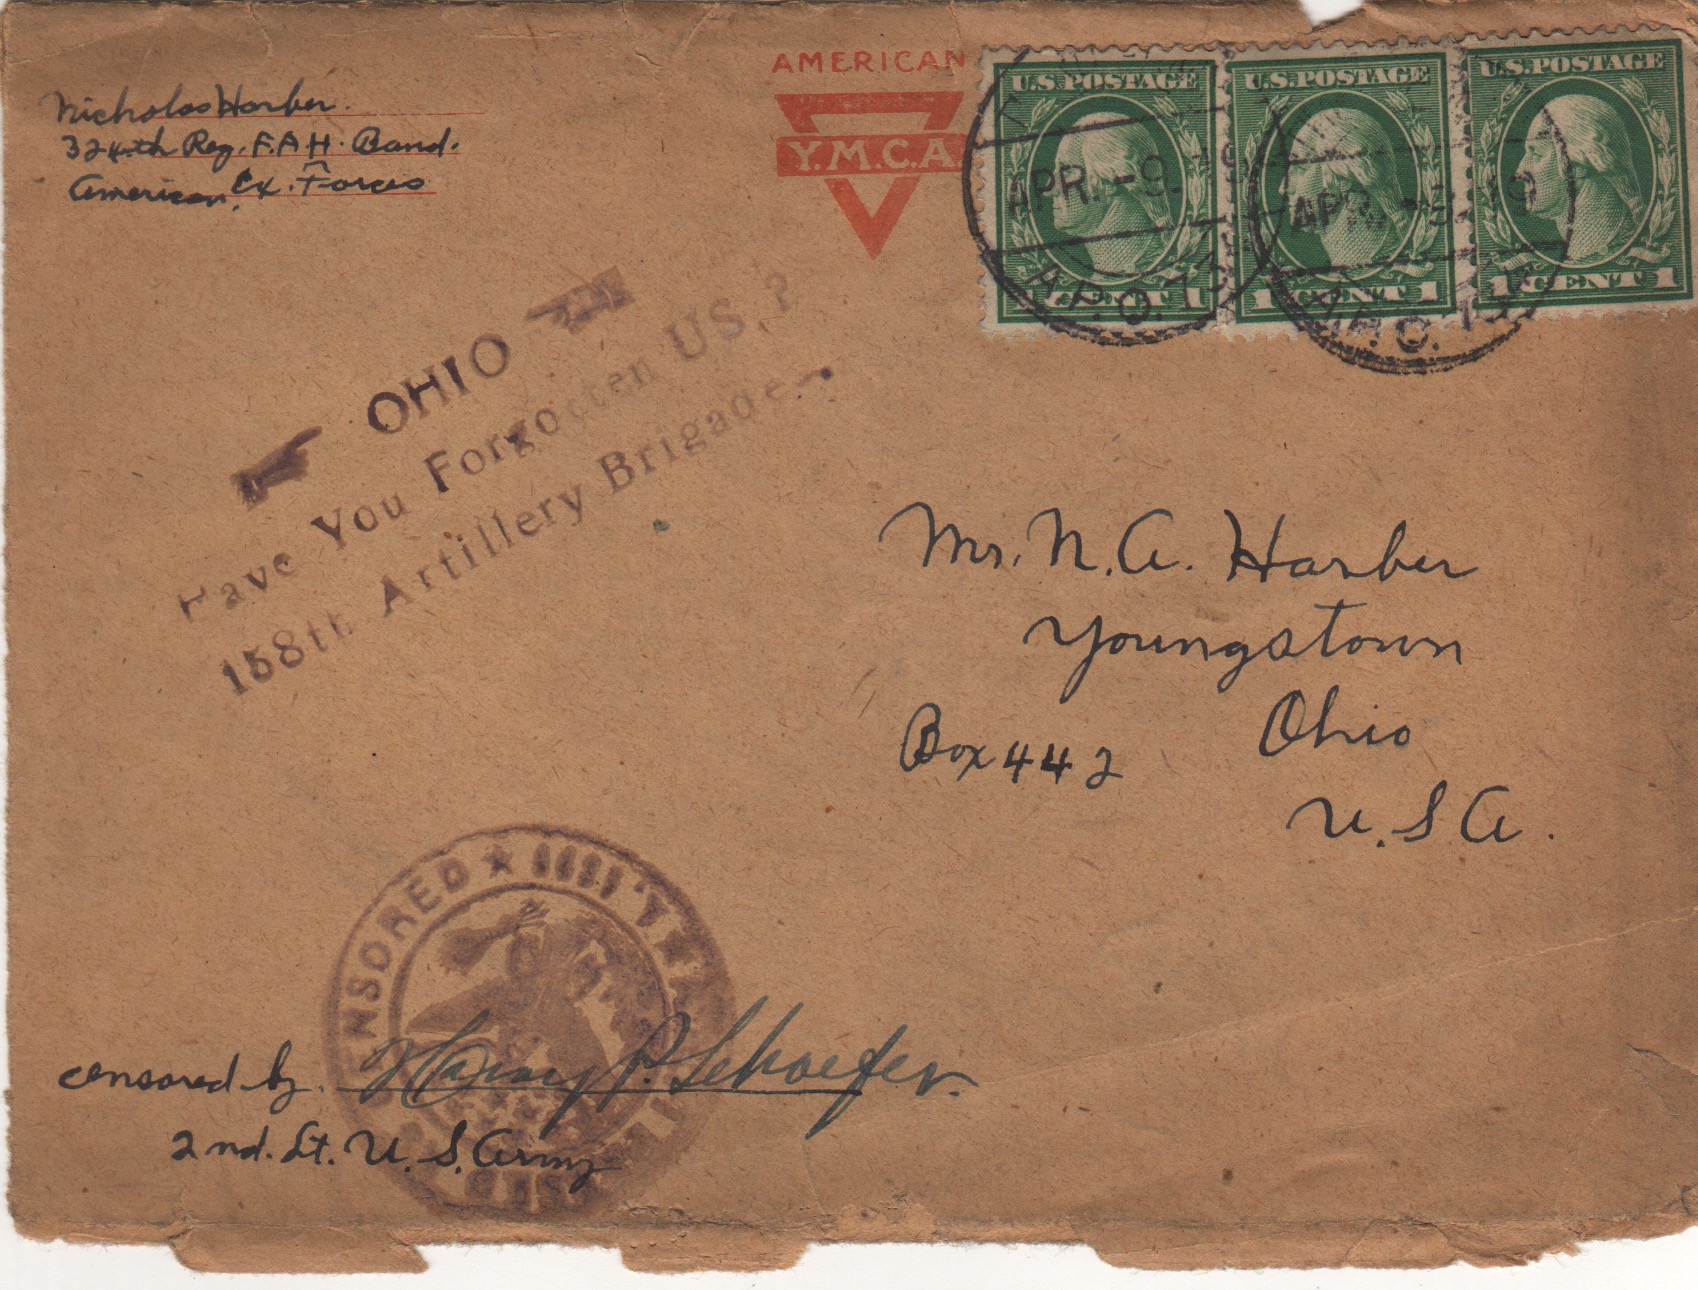 Nicholas Harber.
324th Reg. F.A.H. Band.
American Ex. Forces
AMERICAN
Y.M.C.A.
U.S. POSTAGE
1 CENT 1
U.S. POSTAGE
1 CENT 1
U.S. POSTAGE
1 CENT 1
APR. -9. 19
A.P.O. 75
APR. -9. 19
A.P.O. 75
OHIO
Have You Forgotten US.?
158th Artillery Brigade.
Mr. N. A. Harber
Youngstown
Box 442 Ohio
U.S.A.
CENSORED
censored by. Harry P. Schaefer.
2nd. Lt. U.S. Army